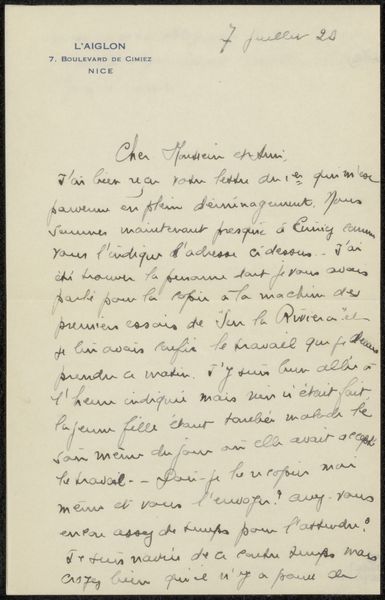 L'AIGLON
7, BOULEVARD DE CIMIEZ
NICE
7 juillet 28
Cher Monsieur et Ami,
J'ai bien reçu votre lettre du 1er qui m'est
parvenue en plein déménagement. Nous
sommes maintenant presqu' à Cimiez comme
vous l'indique l'adresse ci dessus. J'ai
été trouver la personne dont je vous avais
parlé pour la copie à la machine des
premiers essais de "Sur la Riviera" et
je lui avais confié le travail que je devais
prendre ce matin. J'y suis bien allée à
l'heure indiquée mais rien n'était fait
la jeune fille étant tombée malade le
soir même du jour où elle avait accepté
le travail -- Dois-je le recopier moi
même et vous l'envoyer? avez-vous
encore assez de temps pour l'attendre?
Je suis navrée de ce contre temps mais
croyez bien qu'il n'y a pas de